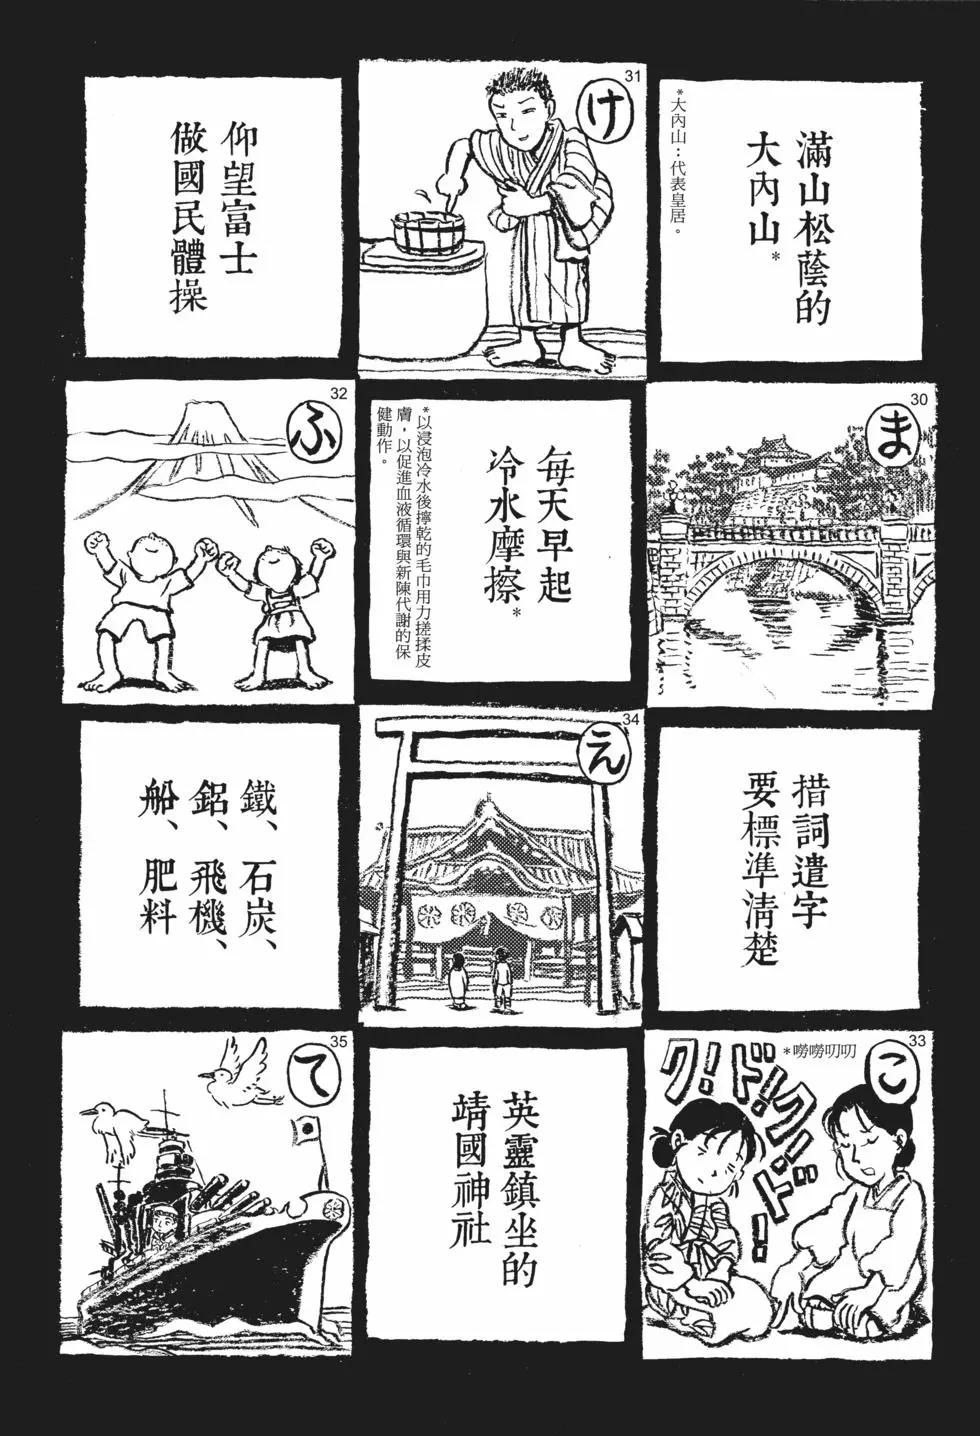 30
ま
滿山松蔭的
大內山*
*大內山：代表皇居。
31
け
每天早起
冷水摩擦*
*以浸泡冷水後擰乾的毛巾用力搓揉皮
膚，以促進血液循環與新陳代謝的保
健動作。
32
ふ
仰望富士
做國民體操
33
こ
措詞遣字
要標準清楚
ク！ド！クード！
*嘮嘮叨叨
34
え
英靈鎮坐的
靖國神社
35
て
鐵、石炭、
鋁、飛機、
船、肥料